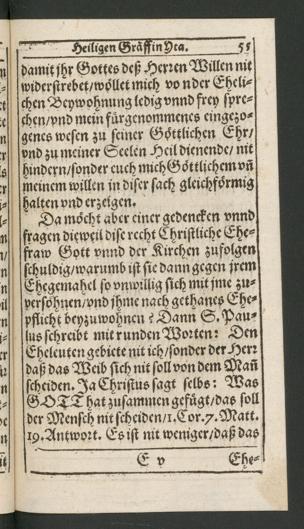 Heiligen Gräffin Yta. 55
damit jhr Gottes deß Herren Willen nit
widerstrebet/wöllet mich von der Eheli-
chen Beywohnung ledig vnnd frey spre-
chen/vnd mein fürgenommenes eingezo-
genes wesen zu seiner Göttlichen Ehr/
vnd zu meiner Seelen Heil dienende/ nit
hindern/sonder euch mich Göttlichem vñ
meinem willen in diser sach gleichförmig
halten vnd erzeigen.
Da möcht aber einer gedencken vnnd
fragen dieweil dise recht Christliche Ehe-
fraw Gott vnnd der Kirchen zufolgen
schuldig/warumb ist sie dann gegen jrem
Ehegemahel so vnwillig sich mit jme zu-
versöhnen/vnd jhme nach gethanes Ehe-
pflicht beyzuwohnen? Dann S. Pau-
lus schreibt mit runden Worten: Den
Eheleuten gebiete nit ich/sonder der Herr
daß das Weib sich nit soll von dem Mañ
scheiden. Ja Christus sagt selbs: Was
GOTT hat zusammen gefügt/das soll
der Mensch nit scheiden/1. Cor. 7. Matt.
19. Antwort. Es ist nit weniger/daß das
E v Ehe-